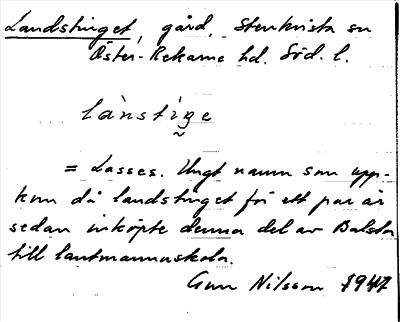 Landstinget, gård, Stenkvista sn
Öster-Rekarne hd. Söd. l.
lànstiŋe
= Lasses. Ungt namn som upp-
kom då landstinget för ett par år
sedan inköpte denna del av Balsta
till lantmannaskola.
Gun Nilsson 1947